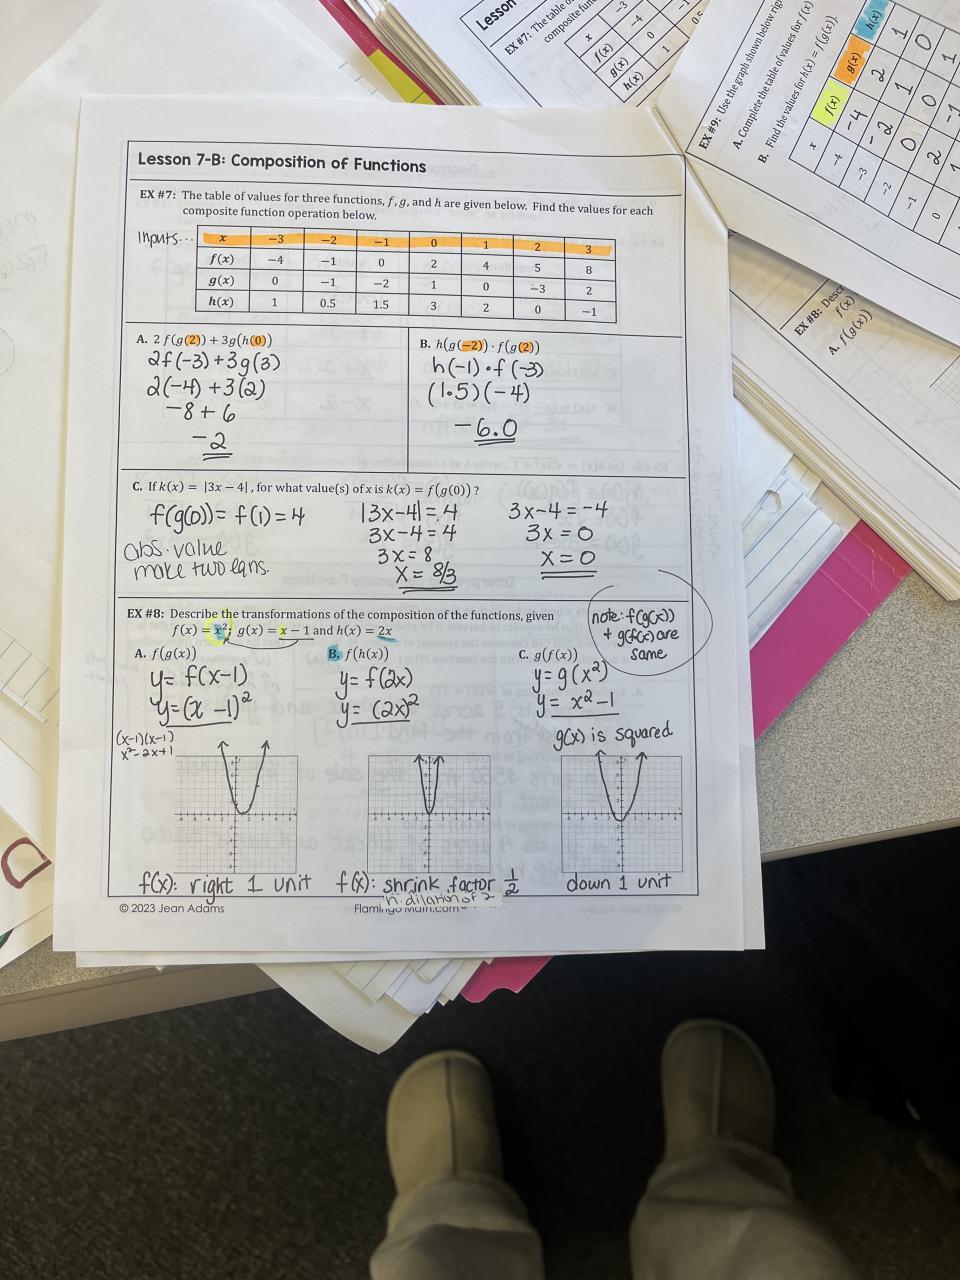 Lesson 7-B: Composition of Functions
EX #7: The table of values for three functions, f, g, and h are given below. Find the values for each
composite function operation below.
Inputs...
x −3 −2 −1 0 1 2 3
f(x) −4 −1 0 2 4 5 8
g(x) 0 −1 −2 1 0 −3 2
h(x) 1 0.5 1.5 3 2 0 −1
A. 2f(g(2)) + 3g(h(0))
2f(-3)+3g(3)
2(-4)+3(2)
-8+6
-2
B. h(g(−2)) · f(g(2))
h(-1)•f(-3)
(1.5)(-4)
-6.0
C. If k(x) = |3x − 4|, for what value(s) of x is k(x) = f(g(0))?
f(g(0))= f(1)=4
abs. value
make two eqns.
|3x-4|=4
3x-4=4
3x=8
x=8/3
3x-4=-4
3x=0
x=0
EX #8: Describe the transformations of the composition of the functions, given
f(x) = x²; g(x) = x − 1 and h(x) = 2x
note: f(g(x))
+ g(f(x) are
same
A. f(g(x))
y= f(x-1)
y=(x-1)²
(x-1)(x-1)
x²-2x+1
f(x): right 1 unit
B. f(h(x))
y= f(2x)
y= (2x)²
f(x): shrink factor 1/2
dilation of 2
C. g(f(x))
y=g(x²)
y= x²-1
g(x) is squared
down 1 unit
© 2023 Jean Adams
Lesson
EX #7: The table
composite
x −3
f(x) −4
g(x) 0
h(x) 1
EX #9: Use the graph shown below
A. Complete the table of values for f(x)
B. Find the values for h(x) = f(g(x)).
x f(x) g(x) h(x)
−4 -4 2 1
−3 -2 1 0
−2 0 0 1
−1 2 -1
0
EX #8:
f(x)
A. f(g(x))